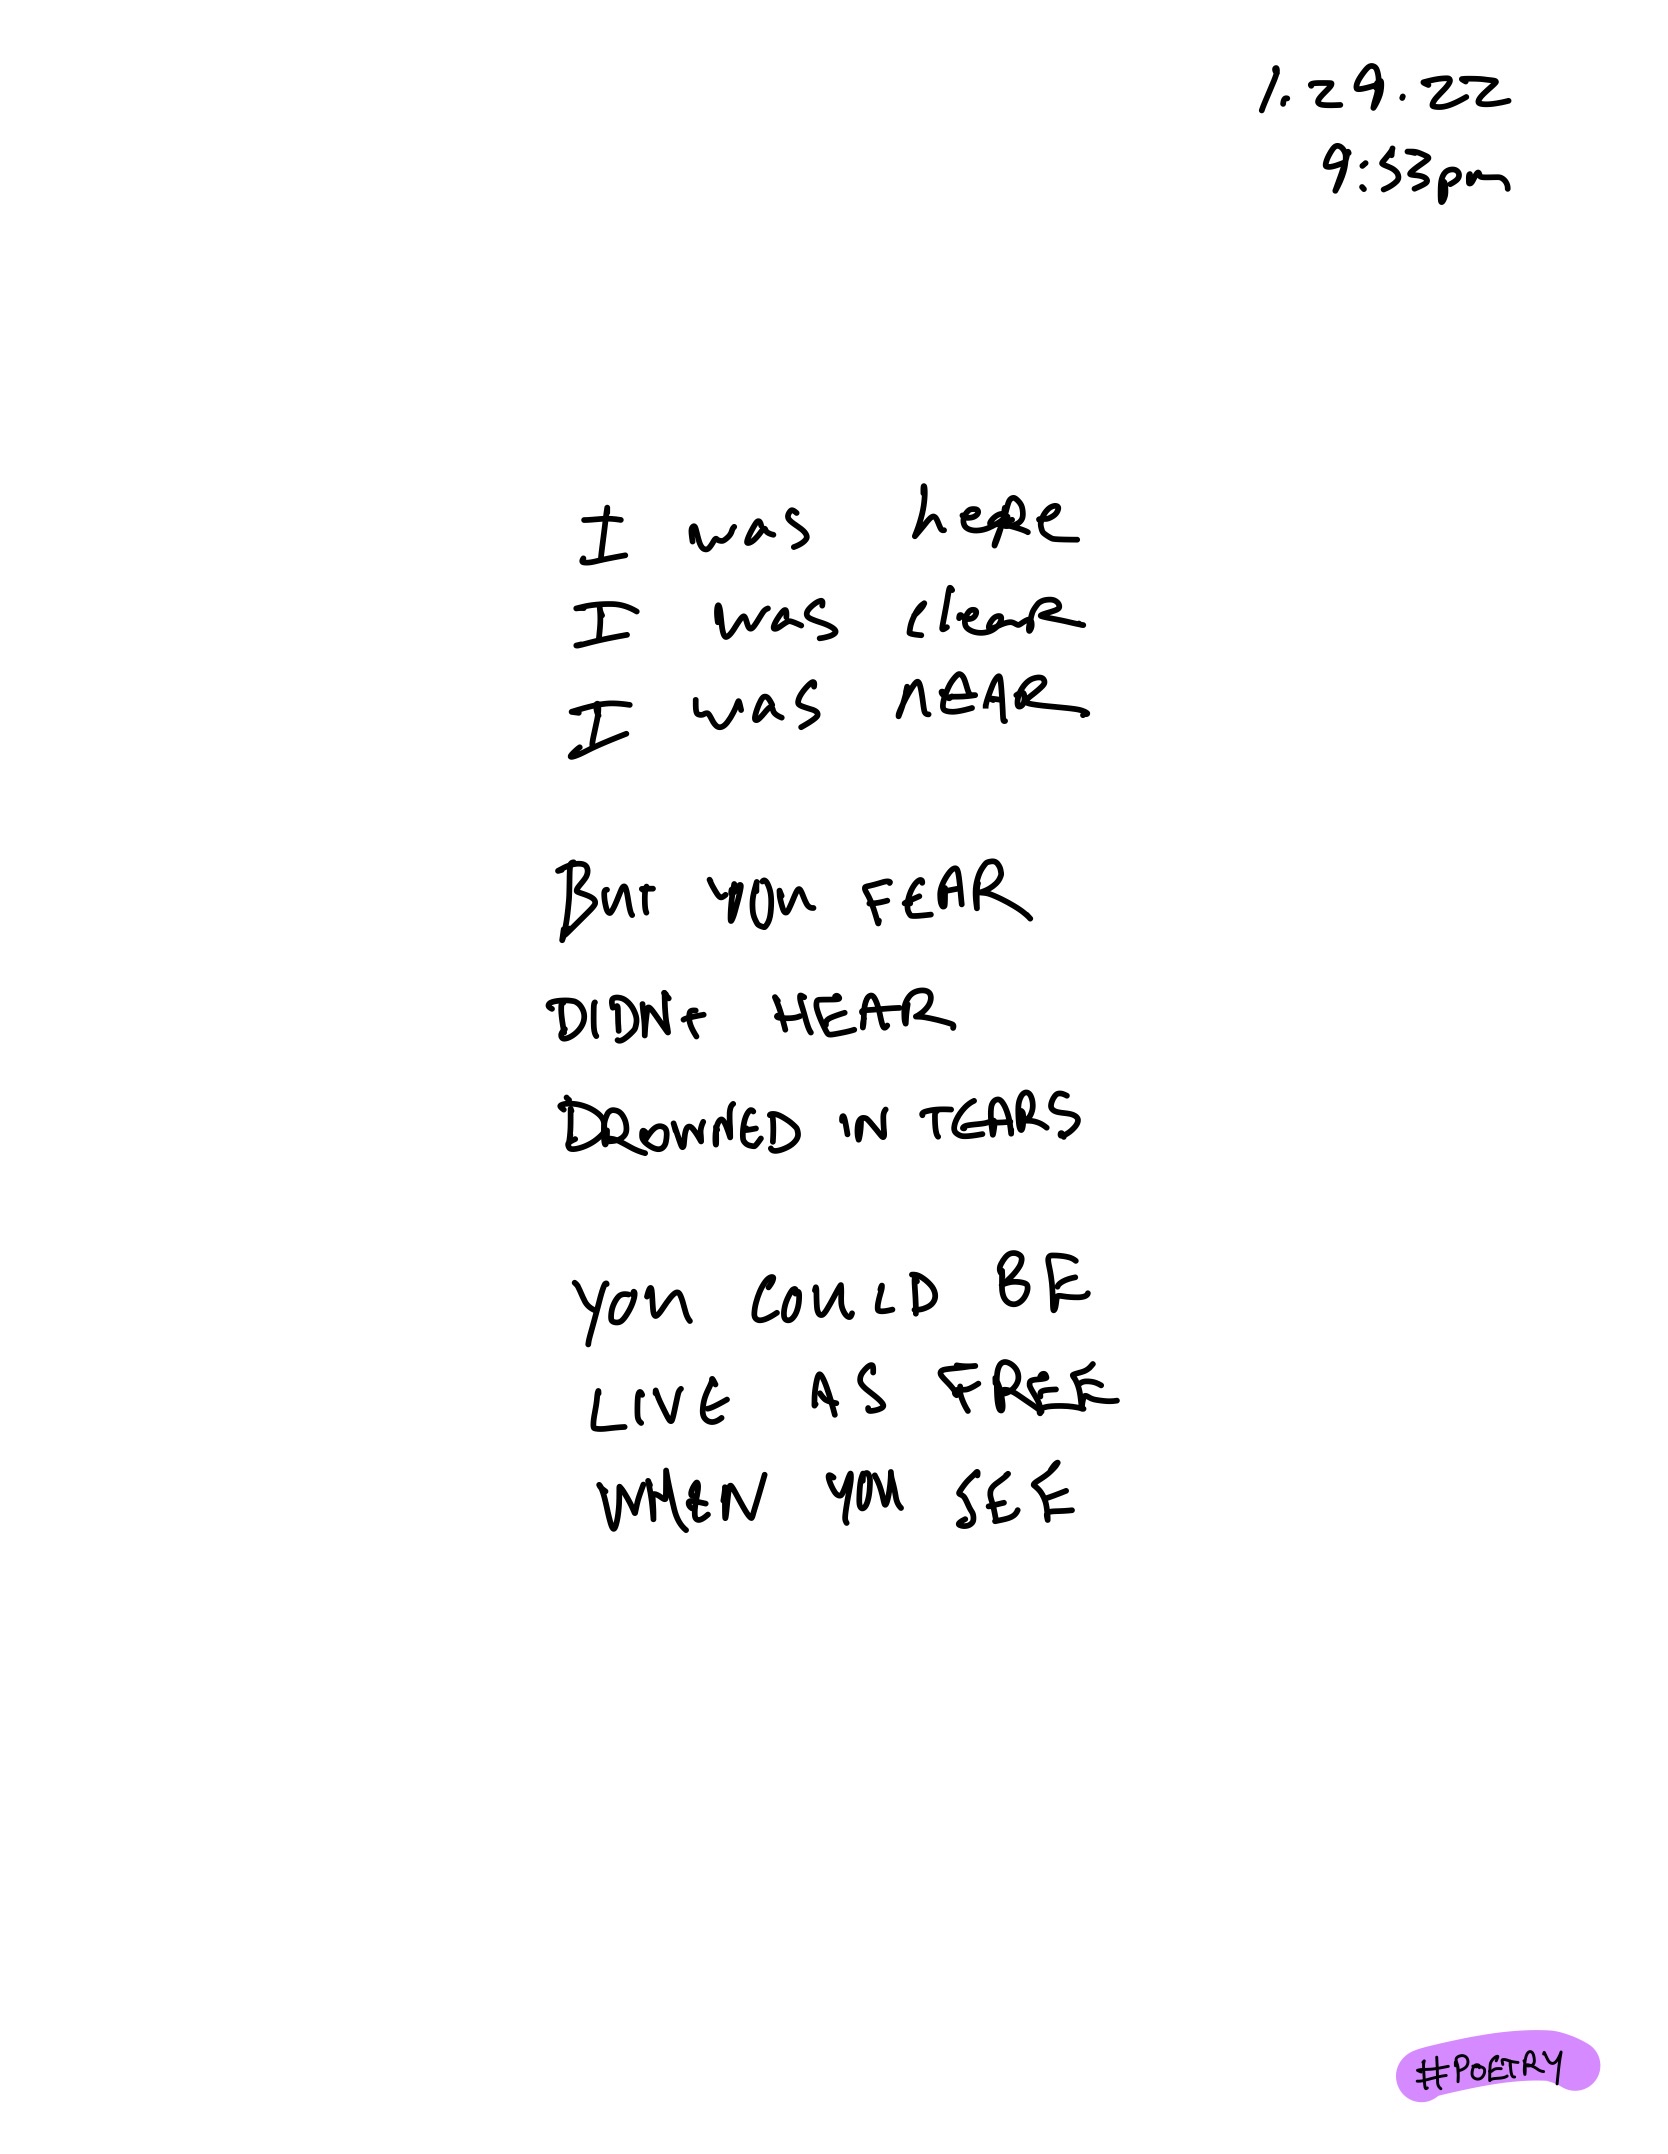 1.29.22
9:53pm
I was here
I was clear
I was nEAR
BuT YOu FEAR
DIDNt HEAR
DROWNED IN TEARS
YOu COULD BE
LIVE AS FREE
WHEN YOU SEE
#POETRY